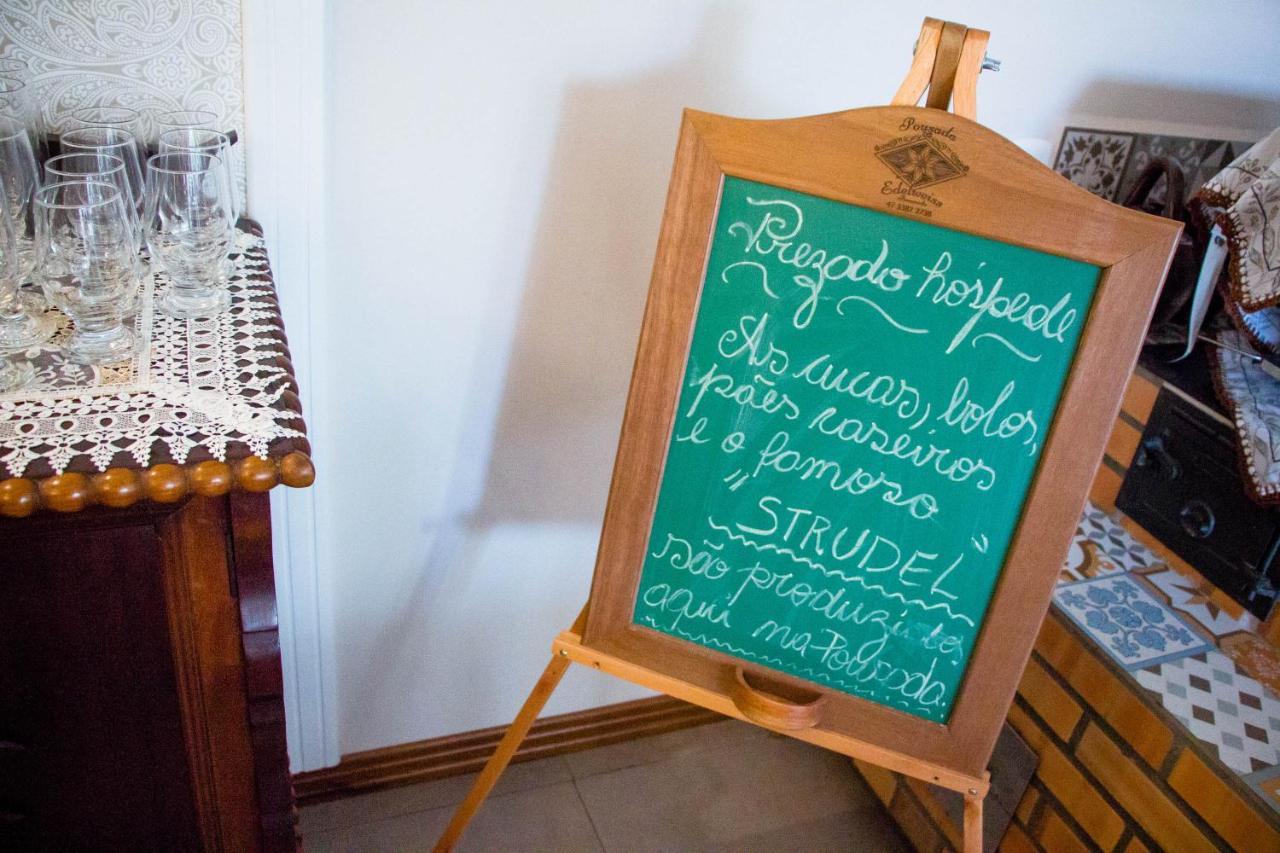 Pousada
Edelweiss
47 3387 2738
Prezado hóspede
As cucas, bolos,
pães caseiros
e o famoso
"STRUDEL"
são produzidos
aqui na Pousada.